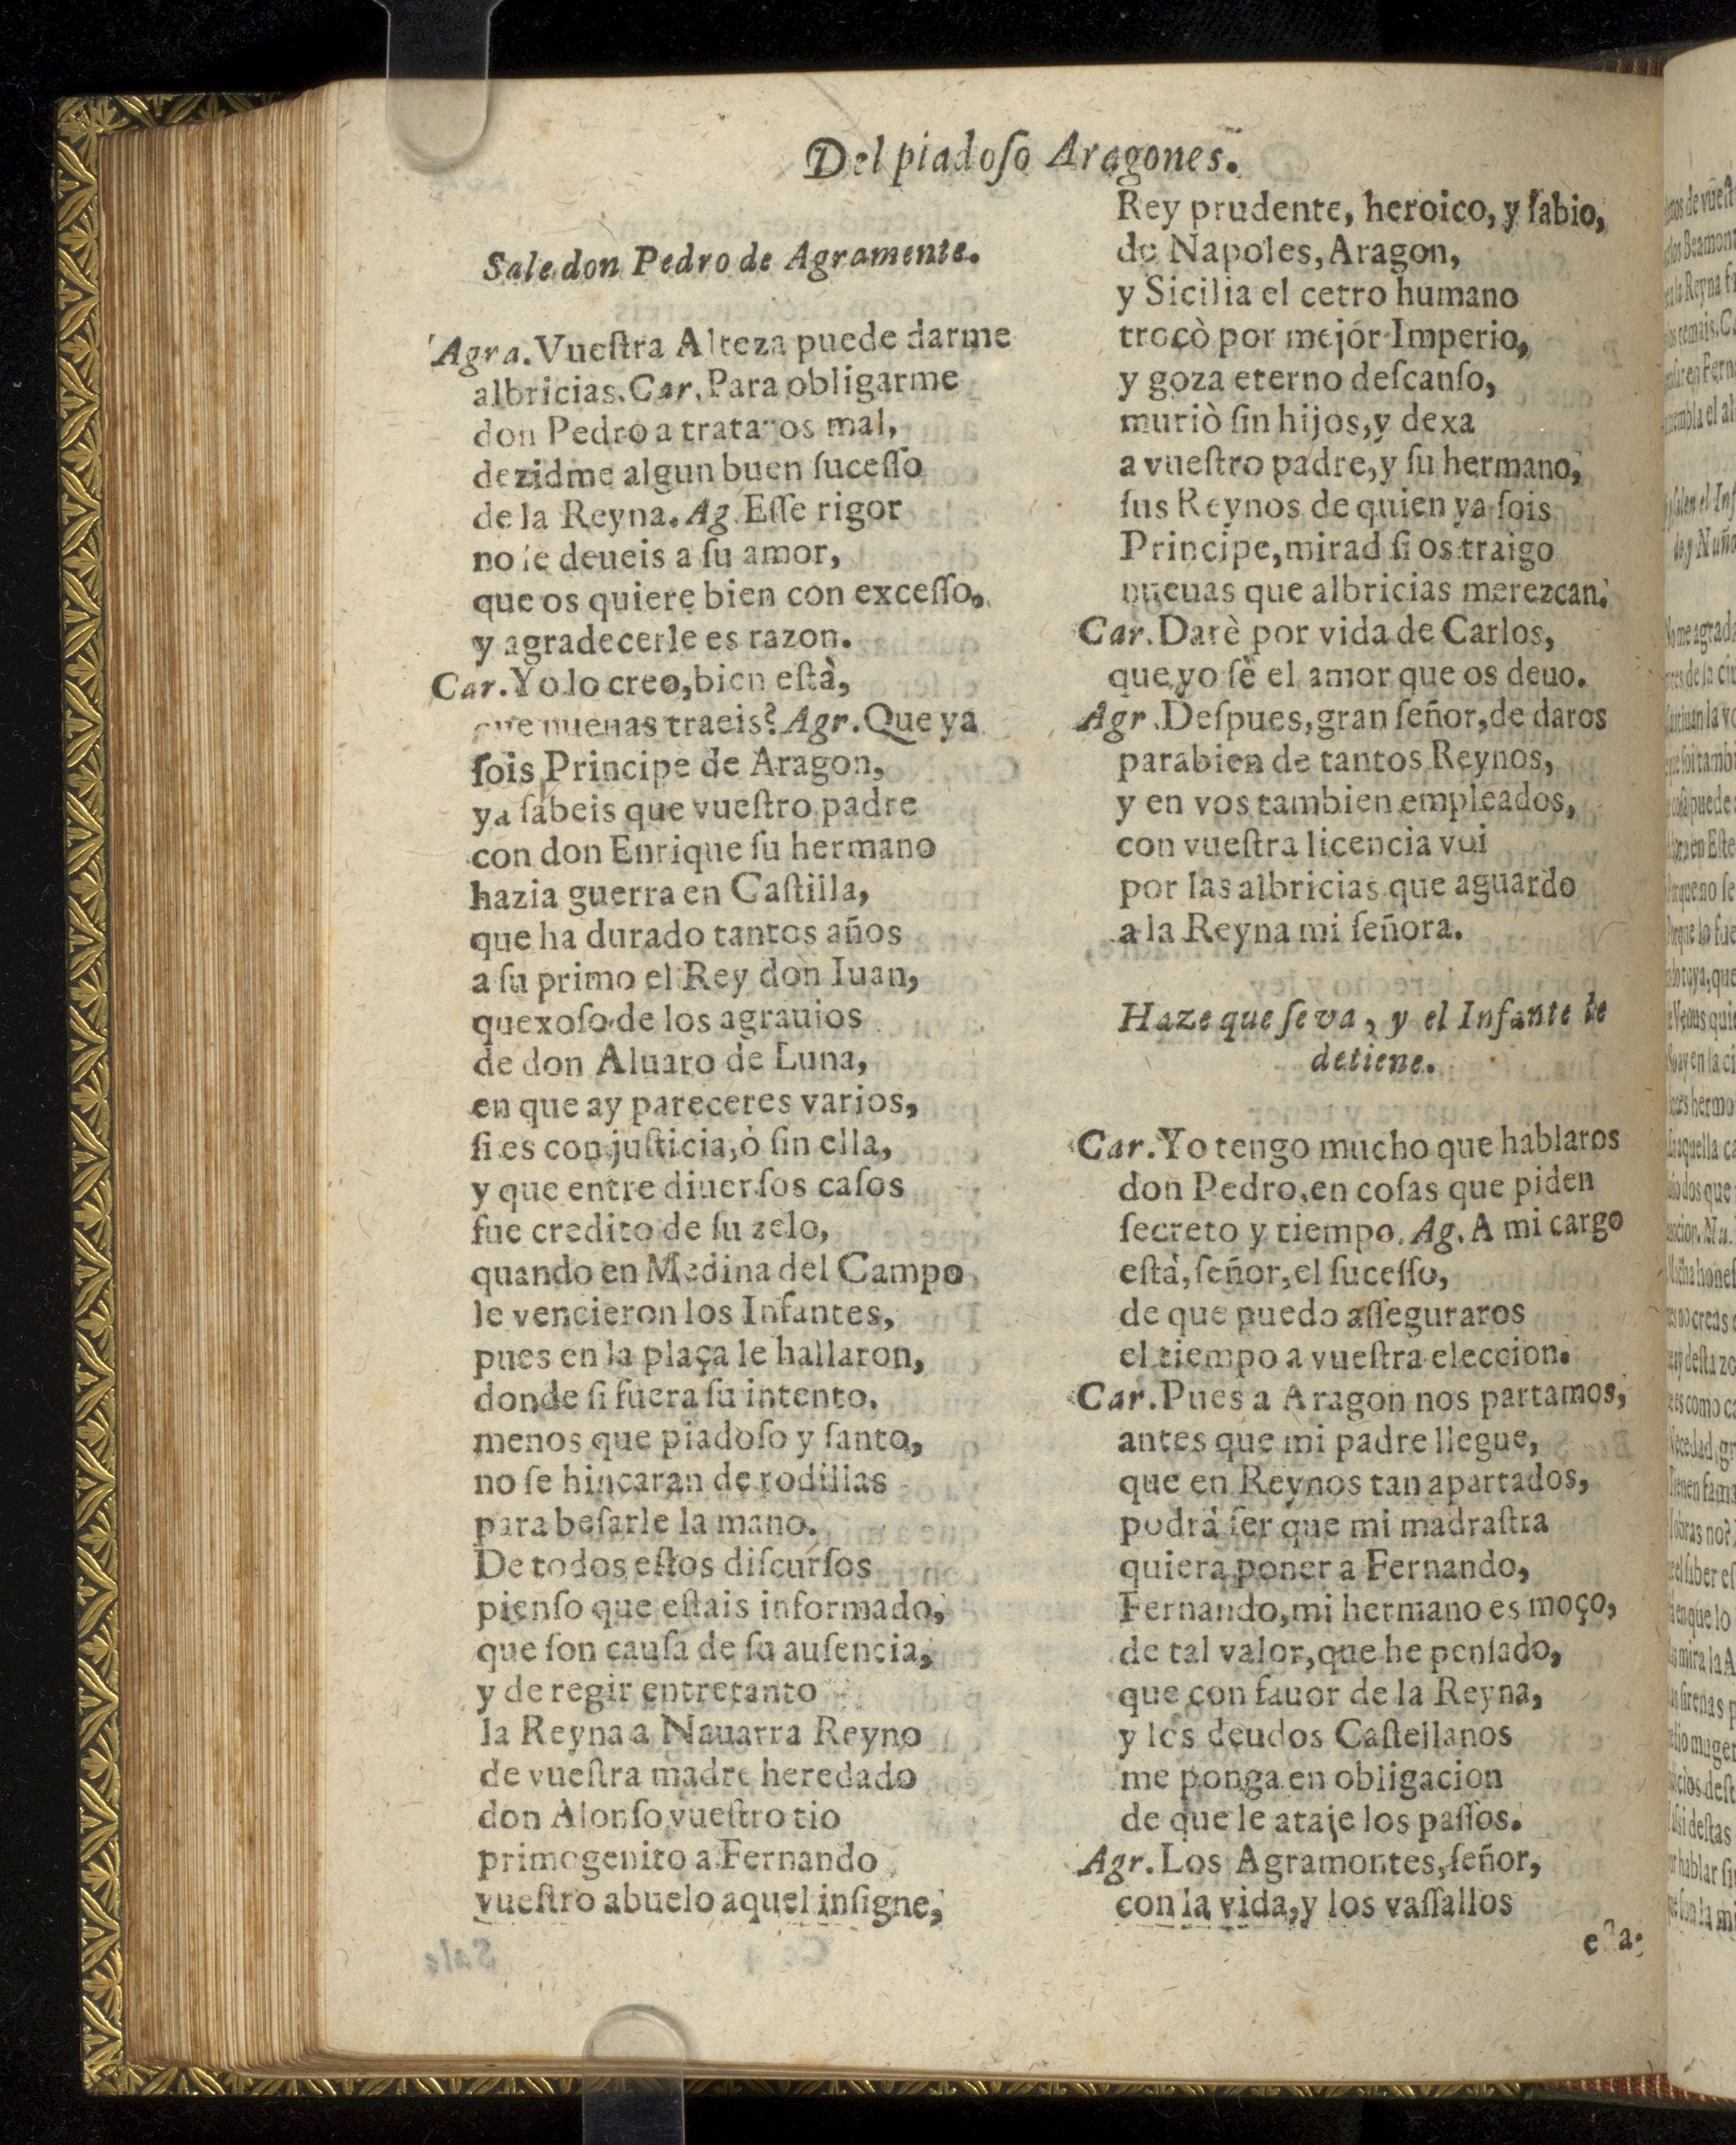 Del piadoſo Aragones.
Sale don Pedro de Agramente.
Agra. Vueſtra Alteza puede darme
albricias. Car. Para obligarme
don Pedro a trataros mal,
dezidme algun buen ſuceſſo
de la Reyna. Ag. Eſſe rigor
no le deueis a ſu amor,
que os quiere bien con exceſſo,
y agradecerle es razon.
Car. Yo lo creo, bien eſtà,
que nueuas traeis? Agr. Que ya
ſois Principe de Aragon,
ya ſabeis que vueſtro padre
con don Enrique ſu hermano
hazia guerra en Caſtilla,
que ha durado tantos años
a ſu primo el Rey don Iuan,
quexoſo de los agrauios
de don Aluaro de Luna,
en que ay pareceres varios,
ſi es con juſticia, ò ſin ella,
y que entre diuerſos caſos
fue credito de ſu zelo,
quando en Medina del Campo
le vencieron los Infantes,
pues en la plaça le hallaron,
donde ſi fuera ſu intento,
menos que piadoſo y ſanto,
no ſe hincaran de rodillas
para beſarle la mano.
De todos eſtos diſcurſos
pienſo que eſtais informado,
que ſon cauſa de ſu auſencia,
y de regir entretanto
la Reyna a Nauarra Reyno
de vueſtra madre heredado
don Alonſo vueſtro tio
primogenito a Fernando
vueſtro abuelo aquel inſigne,
Rey prudente, heroico, y ſabio,
de Napoles, Aragon,
y Sicilia el cetro humano
trocò por mejor Imperio,
y goza eterno deſcanſo,
muriò ſin hijos, y dexa
a vueſtro padre, y ſu hermano,
ſus Reynos de quien ya ſois
Principe, mirad ſi os traigo
nueuas que albricias merezcan.
Car. Darè por vida de Carlos,
que yo sè el amor que os deuo.
Agr. Deſpues, gran ſeñor, de daros
parabien de tantos Reynos,
y en vos tambien empleados,
con vueſtra licencia voi
por las albricias que aguardo
a la Reyna mi ſeñora.
Haze que ſe va, y el Infante le
detiene.
Car. Yo tengo mucho que hablaros
don Pedro, en coſas que piden
ſecreto y tiempo. Ag. A mi cargo
eſtà, ſeñor, el ſuceſſo,
de que puedo aſſeguraros
el tiempo a vueſtra eleccion.
Car. Pues a Aragon nos partamos,
antes que mi padre llegue,
que en Reynos tan apartados,
podrà ſer que mi madraſtra
quiera poner a Fernando,
Fernando, mi hermano es moço,
de tal valor, que he penſado,
que con fauor de la Reyna,
y los deudos Caſtellanos
me ponga en obligacion
de que le ataje los paſſos.
Agr. Los Agramontes, ſeñor,
con la vida, y los vaſſallos